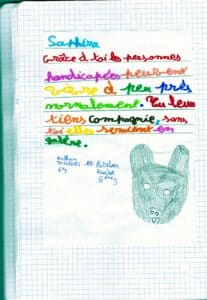 Saphira
Grâce à toi les personnes
handicapées peuvent
vivre à peu près
normalement. Tu leur
tiens compagnie, sans
toi elles seraient en
galère.
et Esteban